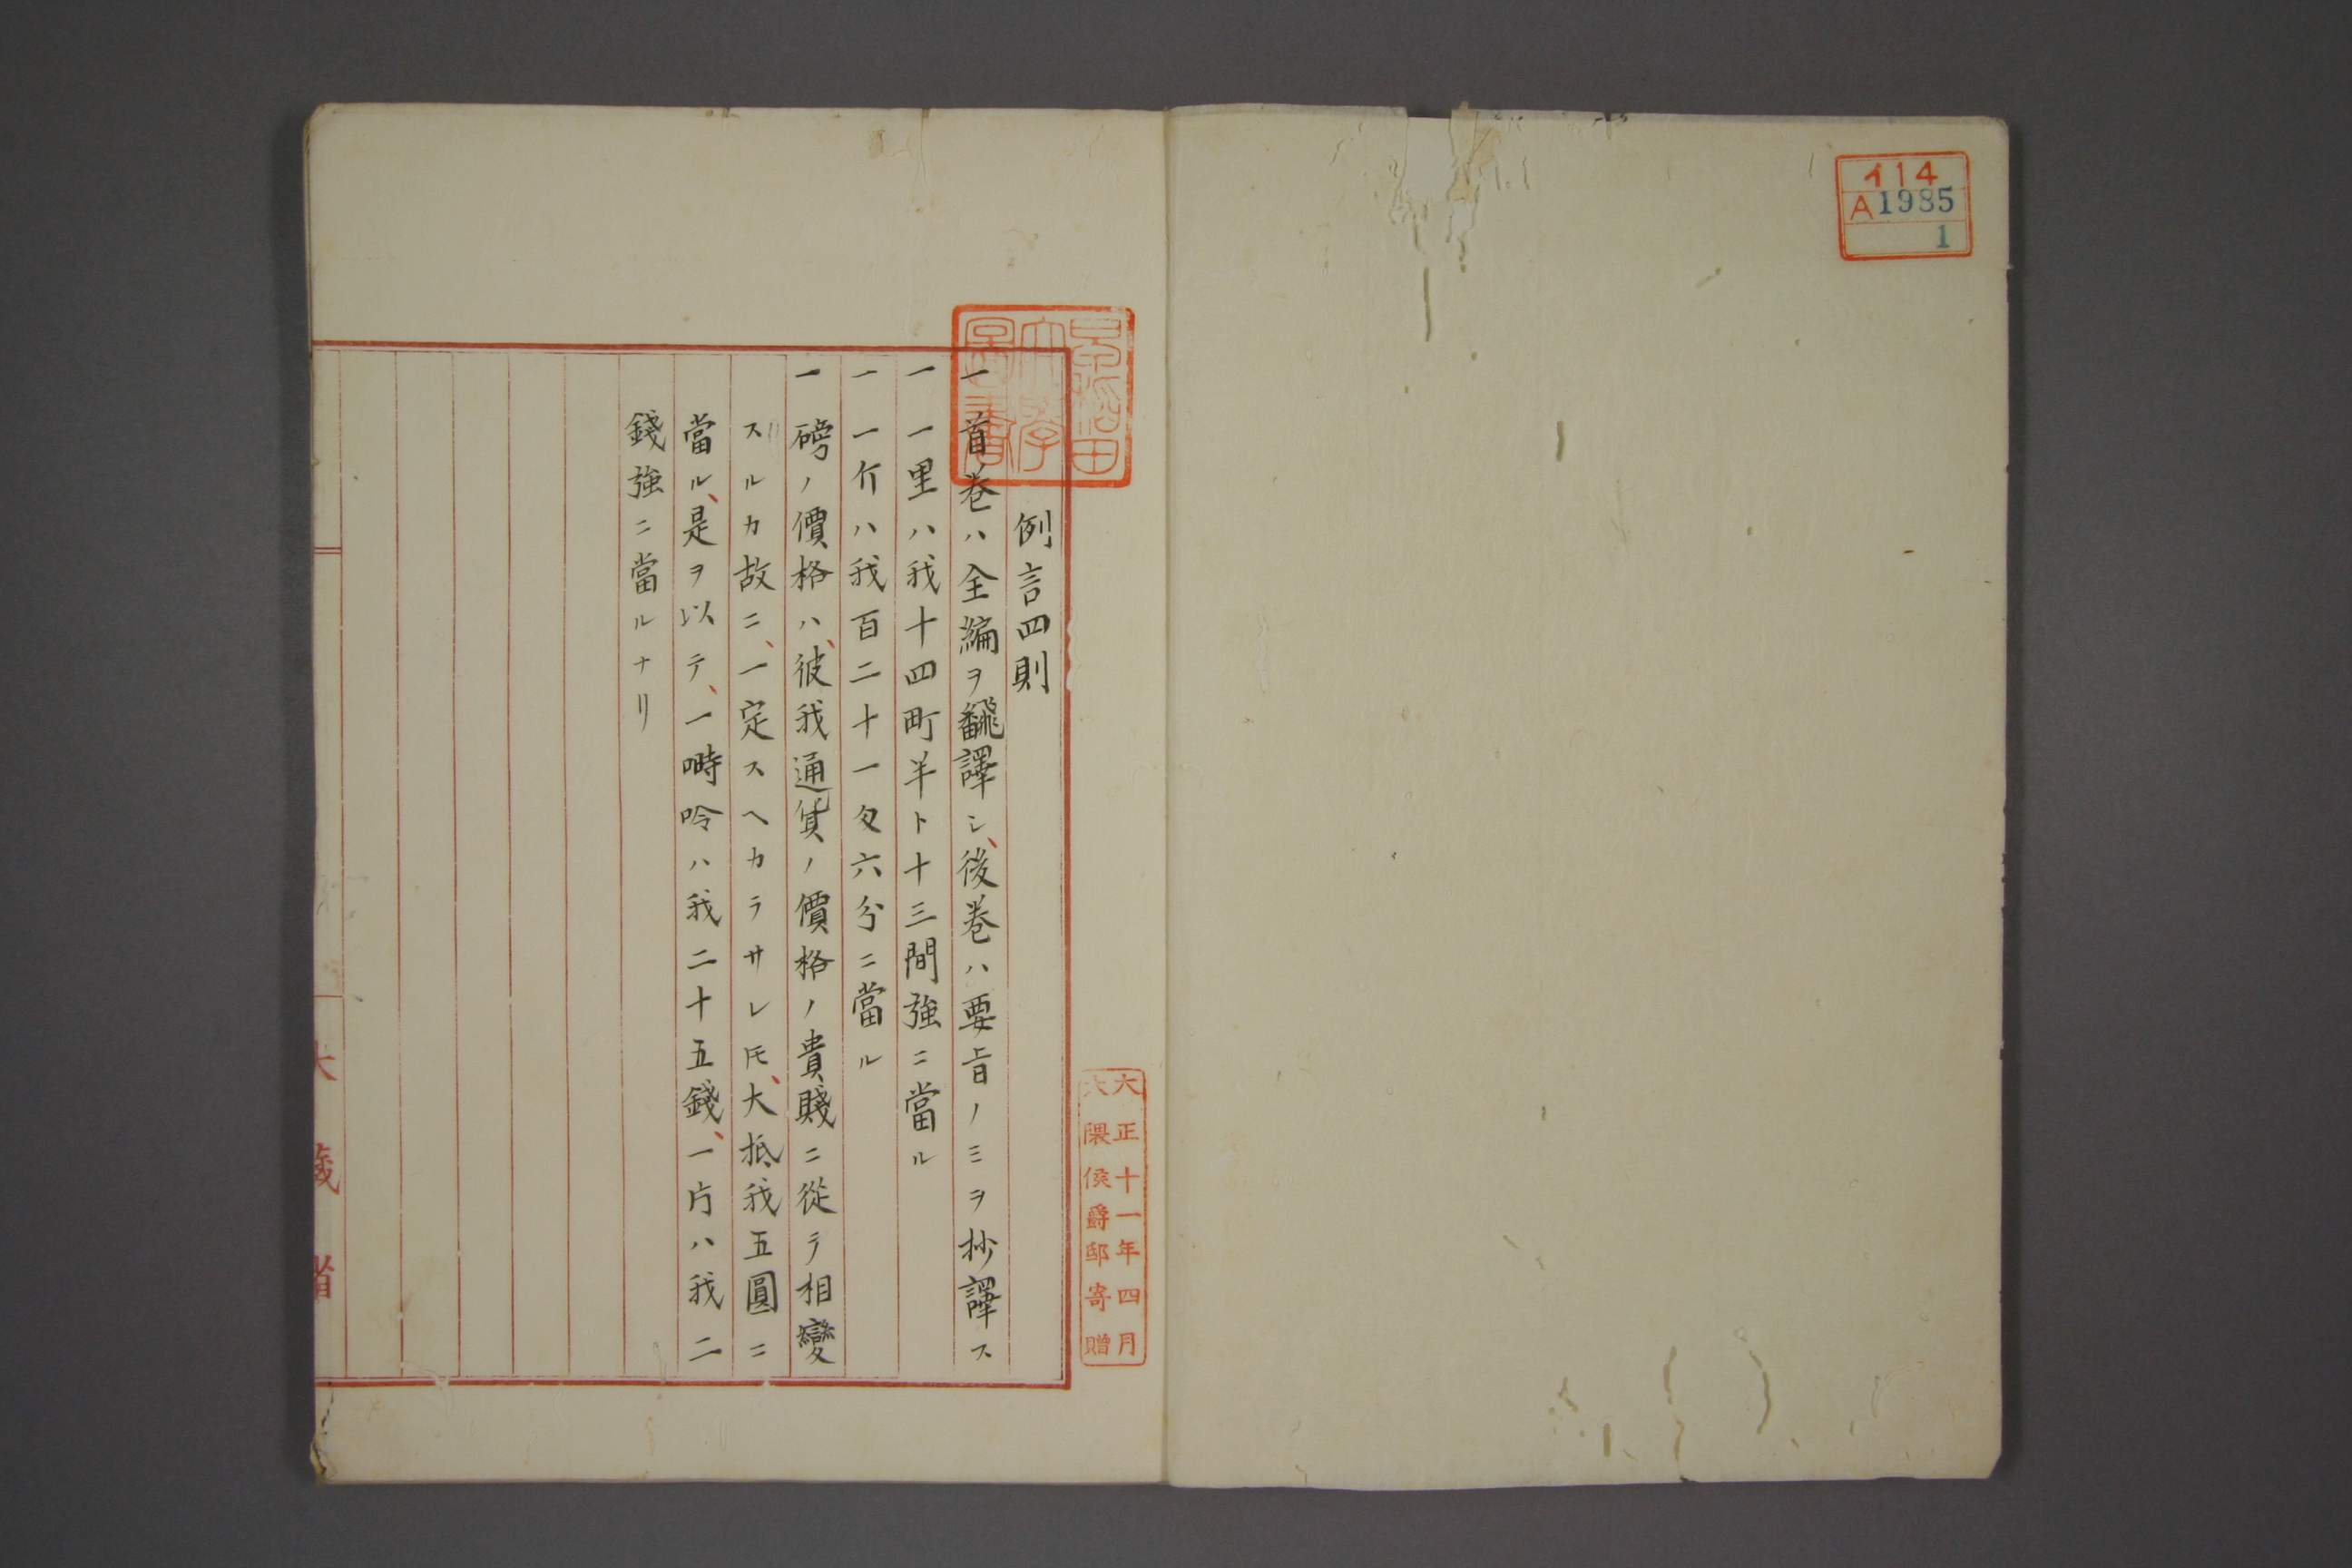 イ14
A1985
1
早稲田
大學
圖書
大正十一年四月
大隈侯爵邸寄贈
例言四則
一首巻ハ全編ヲ飜譯シ、後巻ハ要旨ノミヲ抄譯ス
一一里ハ我十四町半ト十三間強ニ當ル
一一斤ハ我百二十一匁六分ニ當ル
一磅ノ價格ハ、彼我通貨ノ價格ノ貴賤ニ從テ相變
スルカ故ニ、一定スヘカラサレ𪜈、大抵我五圓ニ
當ル、是ヲ以テ、一時呤ハ我二十五錢、一片ハ我二
錢強ニ當ルナリ
大藏省